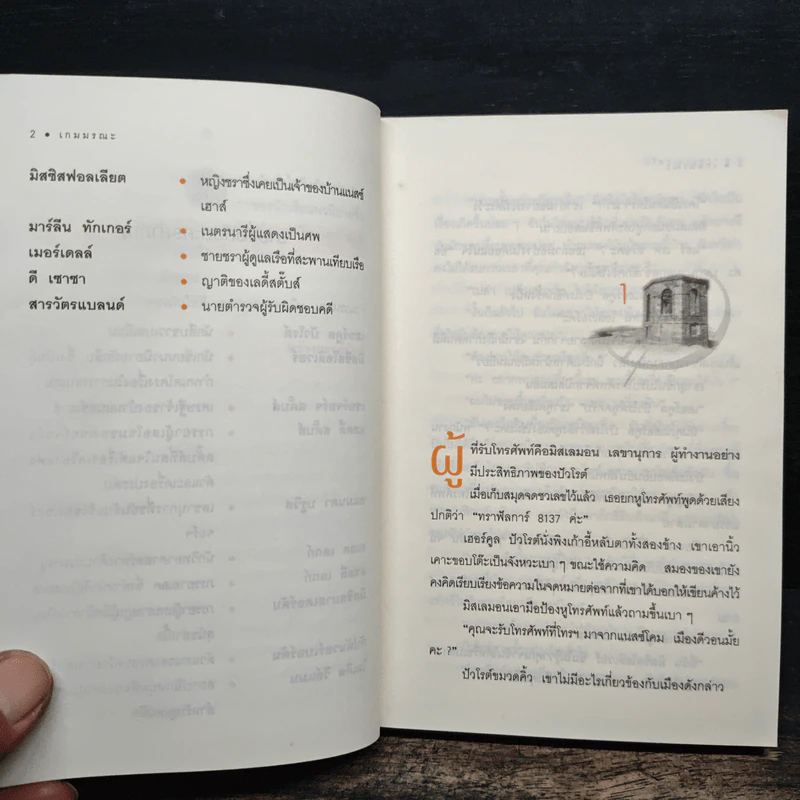 2 • เกมมรณะ
มิสซิสฟอลเลียต • หญิงชราซึ่งเคยเป็นเจ้าของบ้านแนสซ์
เฮาส์
มาร์ลีน ทักเกอร์ • เนตรนารีผู้แสดงเป็นศพ
เมอร์เดลล์ • ชายชราผู้ดูแลเรือที่สะพานเทียบเรือ
ดี เซาซา • ญาติของเลดี้สตั๊บส์
สารวัตรแบลนด์ • นายตำรวจผู้รับผิดชอบคดี
1
ผู้ที่รับโทรศัพท์คือมิสเลมอน เลขานุการ ผู้ทำงานอย่าง
มีประสิทธิภาพของปัวโรต์
เมื่อเก็บสมุดจดชวเลขไว้แล้ว เธอยกหูโทรศัพท์พูดด้วยเสียง
ปกติว่า “ทราฟัลการ์ 8137 ค่ะ”
เฮอร์คูล ปัวโรต์นั่งพิงเก้าอี้หลับตาทั้งสองข้าง เขาเอานิ้ว
เคาะขอบโต๊ะเป็นจังหวะเบา ๆ ขณะใช้ความคิด สมองของเขายัง
คงคิดเรียบเรียงข้อความในจดหมายต่อจากที่เขาได้บอกให้เขียนค้างไว้
มิสเลมอนเอามือป้องหูโทรศัพท์แล้วถามขึ้นเบา ๆ
“คุณจะรับโทรศัพท์ที่โทรฯ มาจากแนสซ์โคม เมืองดีวอนมั้ย
คะ ?”
ปัวโรต์ขมวดคิ้ว เขาไม่มีอะไรเกี่ยวข้องกับเมืองดังกล่าว